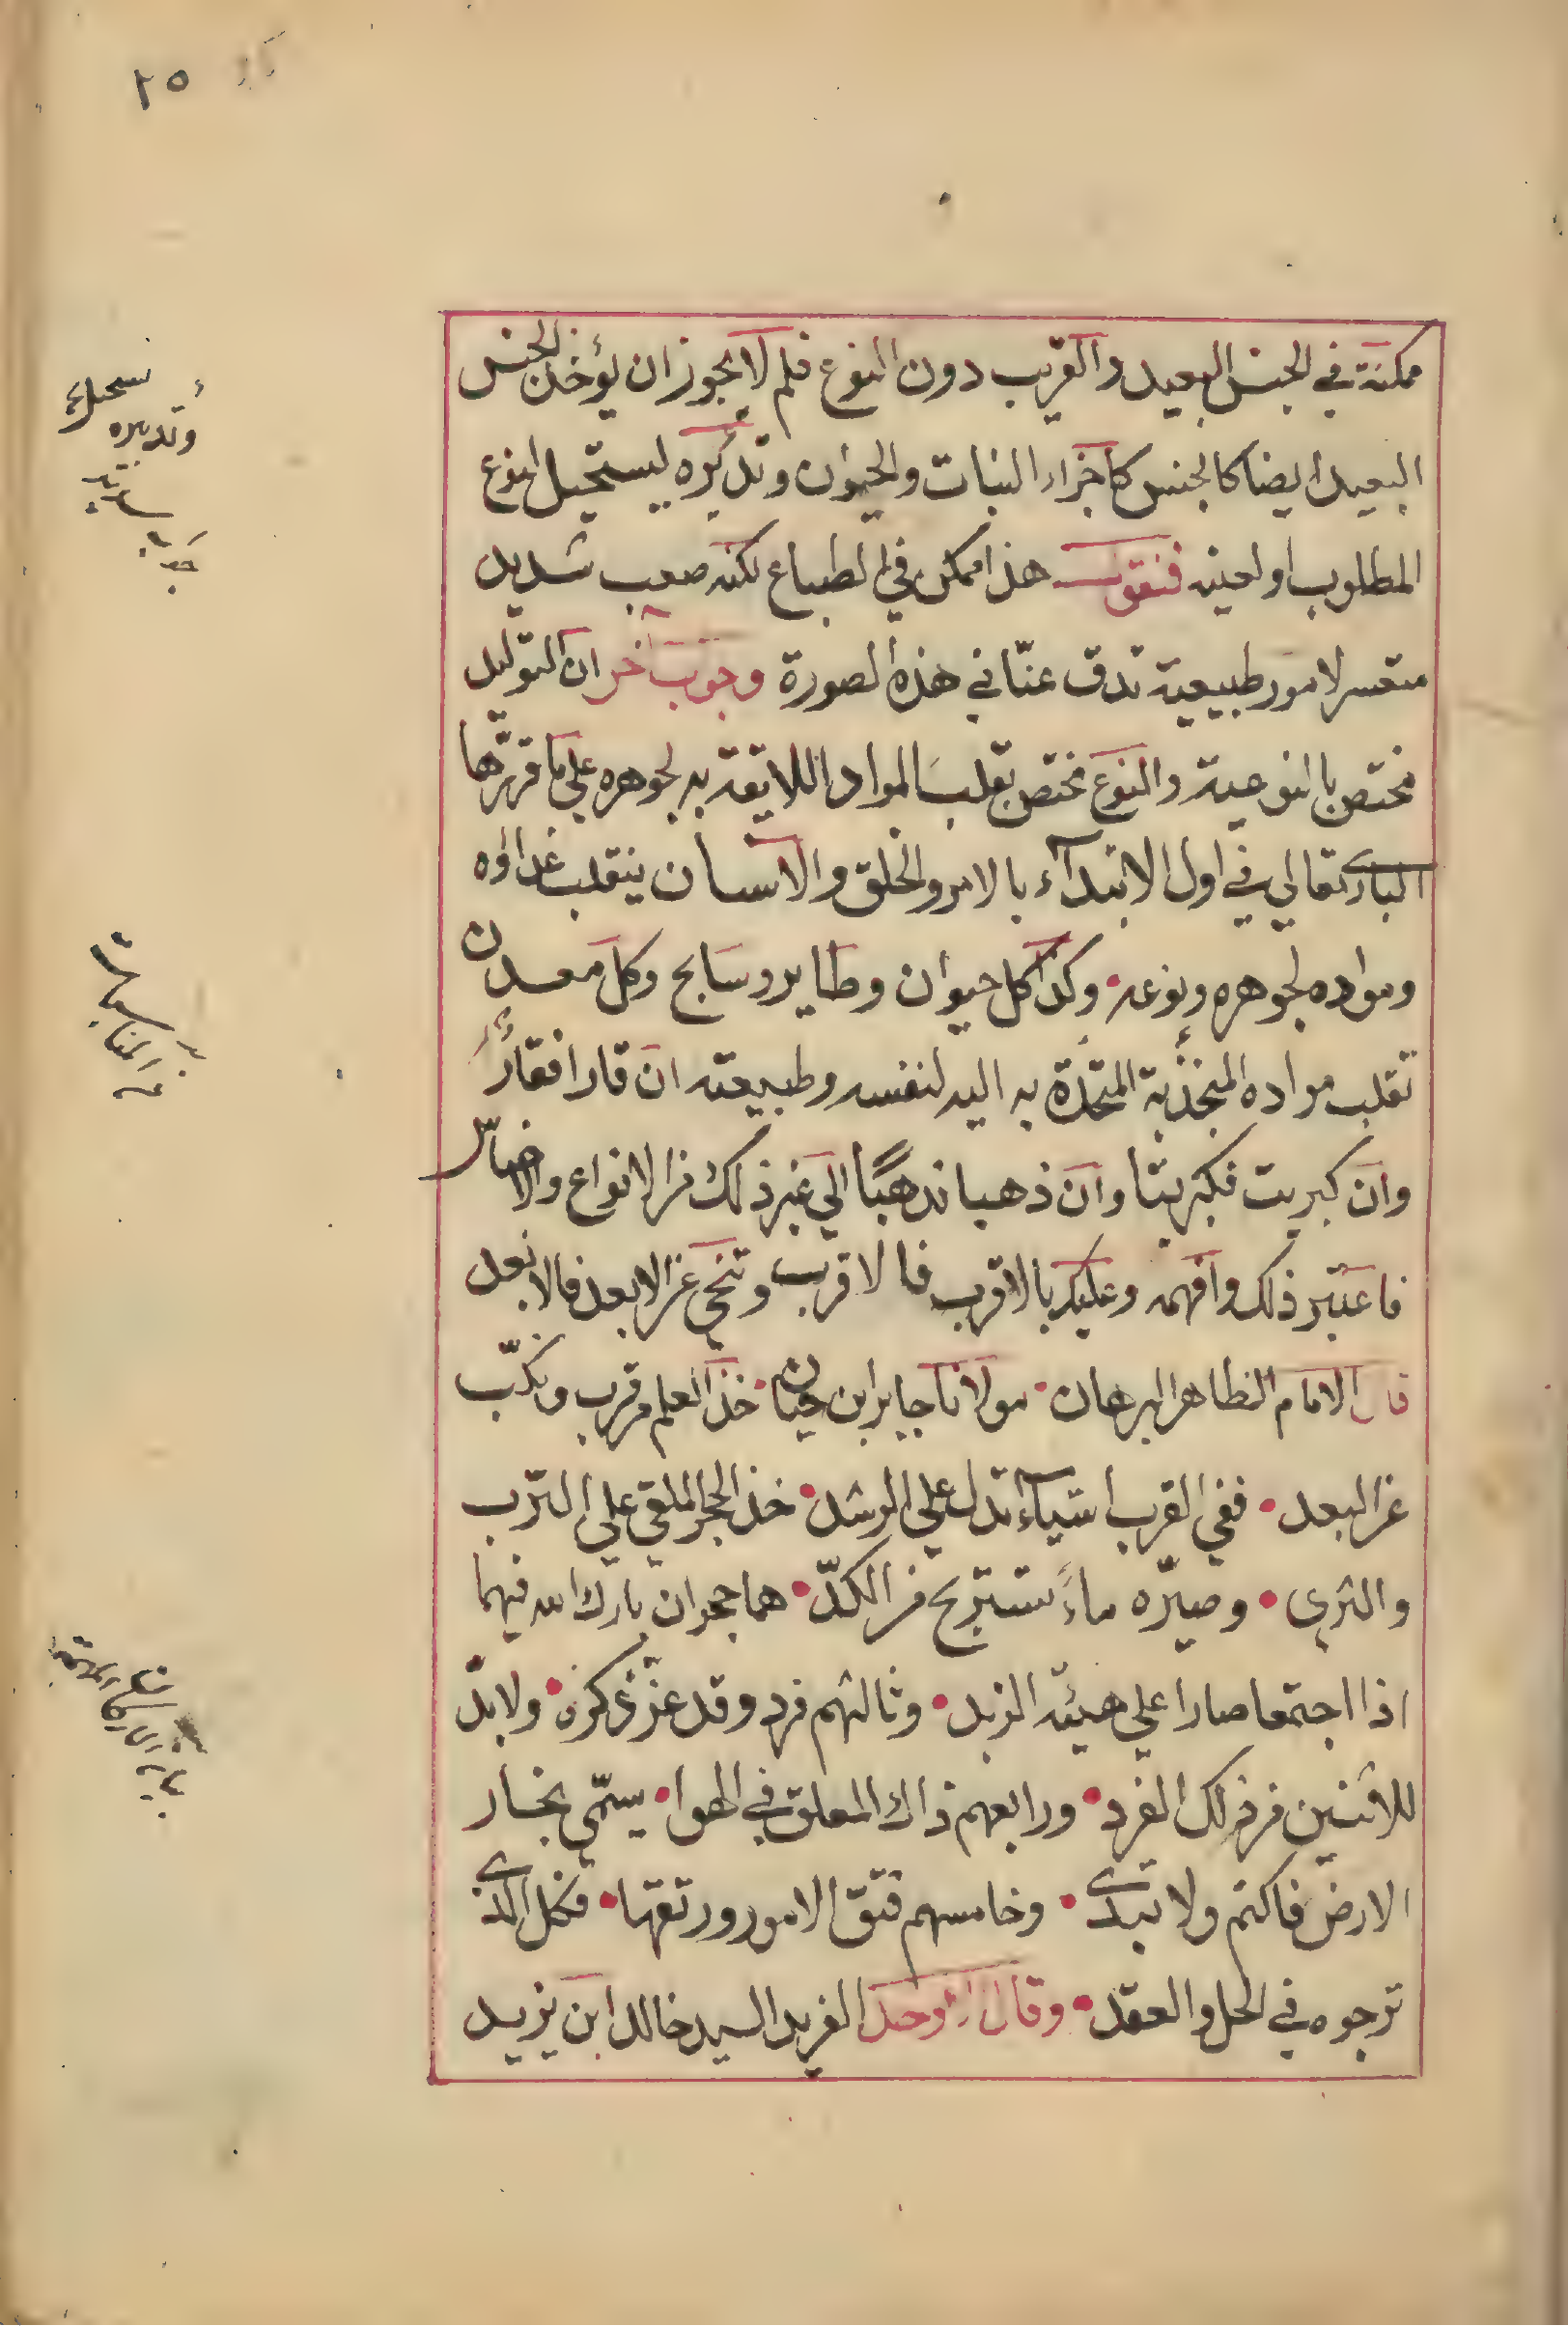 ٢٥
ممكنة في الجنس البعيد والقريب دون النوع فلم لا يجوز ان يؤخذ الجنس
البعيد ايضا كالجنس كاجزاء النبات والحيوان وتدبره ليستحيل لنوع
المطلوب او لعينه فنقول هذا ممكن في الطباع لكنه صعب شديد
متعسر لامور طبيعية تدق عنّا في هذه الصورة وجوب آخر ان التوليد
مختص بالنوعية والنوع مختص بقلب المواد اللايقة به لجوهره علي ما قررّها
الباري تعالي في اول الابتدآء بالامر والخلق والانسان ينقلب غداؤه
ومواده لجوهره ونوعه وكذا كل حيوان وطاير وسابح وكل معدن
تقلب مواده المنجذبة المتحدة به اليه لنفسه وطبيعته ان قارا فقارًا
وان كبريت فكبريتا وان ذهبا فذهبًا الي غير ذلك من الانواع والاجناس
فاعتبر ذلك وافهمه وعليك بالاقرب فالاقرب وتنحي عن الابعد فالابعد
قال الامام الظاهر البرهان مولانا جابر ابن حيان خذ العلم من قرب ونكّب
عن البعد ففي القرب اشيآء تدل علي الرشد خذ الحجر الملقي علي الترب
والثري وصيّره ماءً تستريح من الكدّ هما حجران بارك الله فيهما
اذا اجتمعا صارا علي هيئه الزبد وثالثهم فرد وقد عزّ ذكره ولا بدّ
للاثنين من ذلك الفرد ورابعهم ذاك المعلق في الهوا يسمّي بخار
الارض فاكتم ولا تبدى وخامسهم فتق الامور ورتقها فكل الذى
ترجوه في الحل والعقد وقال الاوحد الفريد السيد خالد ابن يزيد
وتدبيره